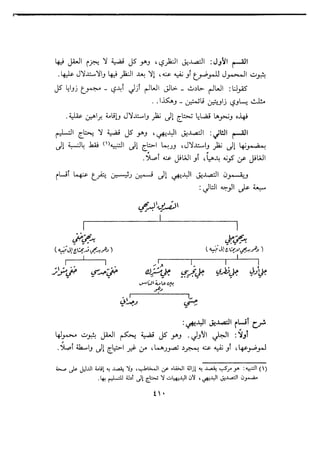 القسم الأول: التصديق النظري، وهو كل قضية لا يجزم العقل فيها
بثبوت المحمول للموضوع أو نفيه عنه، إلا بعد النظر فيها والاستدلال عليها.
كقولنا: العالم حادث - خالق العالم أزلي أبدي - مجموع زوايا كل
مثلث يساوي زاويتين قائمتين - وهكذا..
فهذه ونحوها قضايا تحتاج إلى نظر واستدلال وإقامة براهين عقلية.
القسم الثاني: التصديق البديهي، وهو كل قضية لا يحتاج التسليم
بمضمونها إلى نظر واستدلال، وربما احتاج إلى التنبيه(١) فقط بالنسبة إلى
الغافل عن كونه بدهياً، أو الغافل عنه أصلاً.
ويقسمون التصديق البديهي إلى قسمين رئيسين يتفرع عنهما أقسام
سبعة على الوجه التالي:
التصديق البديهي
بديهي جلي
بديهي خفي
جلي أولي
جلي فطري
جلي تجريبي
جلي مشترك
خفي حدسي
خفي متواتر
بين عامة الناس
وهو
حسي
وجداني
شرح أقسام التصديق البديهي:
أولاً: الجلي الأولي. وهو كل قضية يحكم العقل بثبوت محمولها
لموضوعها، أو نفيه عنه بمجرد تصورهما، من غير احتياج إلى واسطة أصلاً.
(١) التنبيه: هو مركب يقصد به إزالة الخفاء عن المخاطب، ولا يقصد به إقامة الدليل على صحة
مضمون التصديق البديهي، لأن البديهيات لا تحتاج إلى أدلة للتسليم بها.
٤١٠